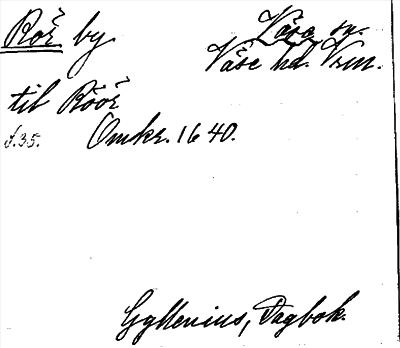 Rör by. Väse sn.
Väse hd. Vrm.
til Röör
s.35. Omkr. 1640.
Gyllenius, Dagbok.